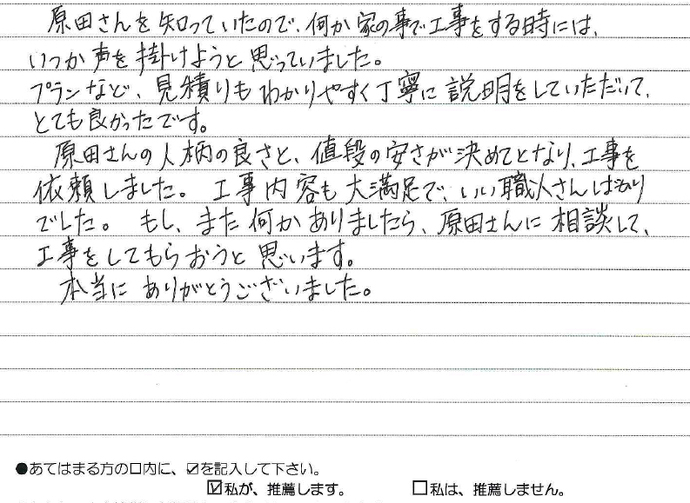 原田さんを知っていたので、何か家の事で工事をする時には、
いつか声を掛けようと思っていました。
プランなど、見積りもわかりやすく丁寧に説明をしていただいて、
とても良かったです。
原田さんの人柄の良さと、値段の安さが決めてとなり、工事を
依頼しました。工事内容も大満足で、いい職人さんばかり
でした。もし、また何かありましたら、原田さんに相談して、
工事をしてもらおうと思います。
本当にありがとうございました。
●あてはまる方の口内に、☑を記入して下さい。
☑私が、推薦します。 □私は、推薦しません。